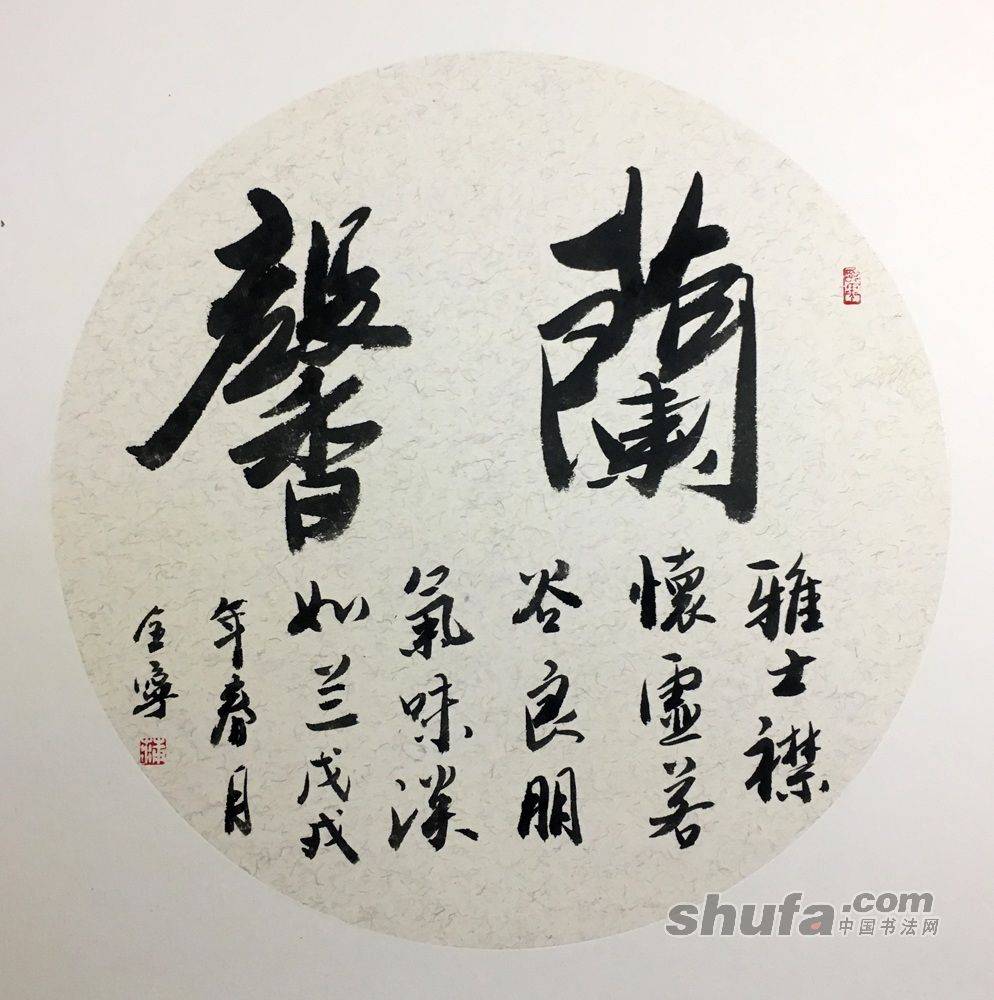 蘭馨
雅士襟
懷虛若
谷良朋
氣味淡
如兰戊戌
年春月
全寧
shufa.com
中国书法网